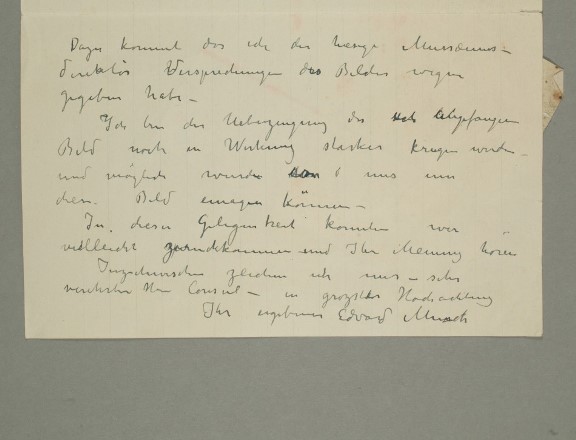 Dazu kommt das ich den hiesige Museeums-
direktör Versprechungen des Bildes wegen
gegeben habe –
Ich bin der Ueberzeugung das angefangene
Bild noch in Wirkung starker kriegen werde –
und möglich wurde uns um
dies. Bild einigen können –
In dieser Gelegenheit konnten wir
vielleicht zurückkommen und Ihr Meinung hören
Inzwischen zeichne ich mus – sehr
verehrter Herr Consul – in grosster Hochachtung
Ihr ergebener Edvard Munch